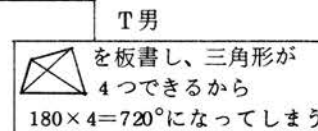 T男
を板書し、三角形が
4つできるから
180×4=720°になってしまう